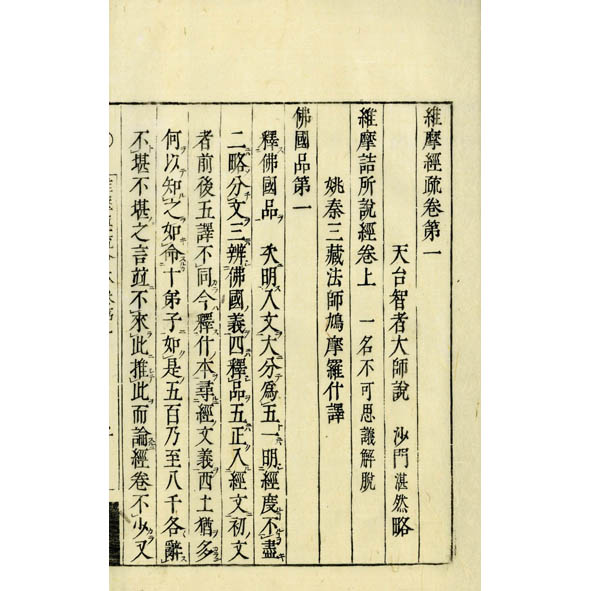 維摩經疏卷第一
天台智者大師說　沙門湛然略
維摩詰所說經卷上　一名不可思議解脫
姚秦三藏法師鳩摩羅什譯
佛國品第一
釋佛國品　次明入文大分爲五一明經度不盡
二略分文三辨佛國義四釋品五正入經文初文
者前後五譯不同今釋什本尋經文義西土猶多
何以知之如命十弟子如是五百乃至八千各辭
不堪不堪之言竝不來此推此而論經卷不少又